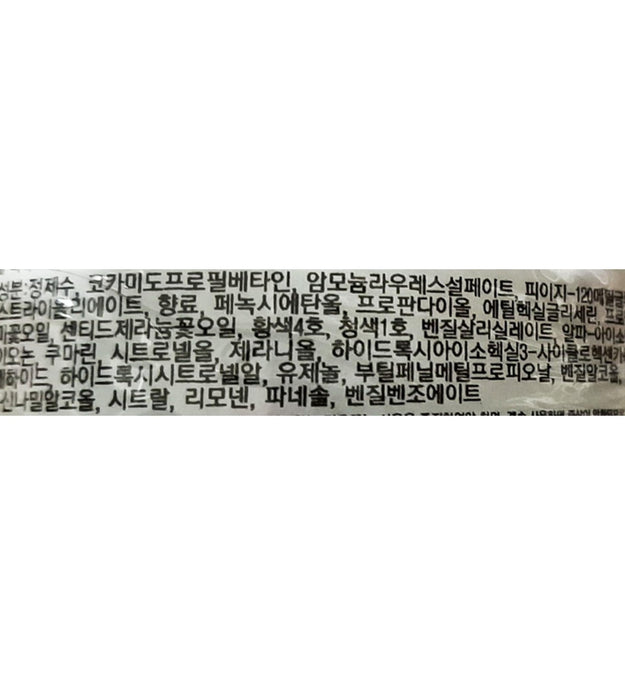 성분:정제수, 코카미도프로필베타인, 암모늄라우레스설페이트, 피이지-120메틸글
스트라이올리에이트, 향료, 페녹시에탄올, 프로판다이올, 에틸헥실글리세린, 프로
미꽃오일, 센티드제라늄꽃오일, 황색4호, 청색1호, 벤질살리실레이트, 알파-아이소
이오논, 쿠마린, 시트로넬올, 제라니올, 하이드록시아이소헥실3-사이클로헥센카
데하이드, 하이드록시시트로넬알, 유제놀, 부틸페닐메틸프로피오날, 벤질알코올,
신나밀알코올, 시트랄, 리모넨, 파네솔, 벤질벤조에이트